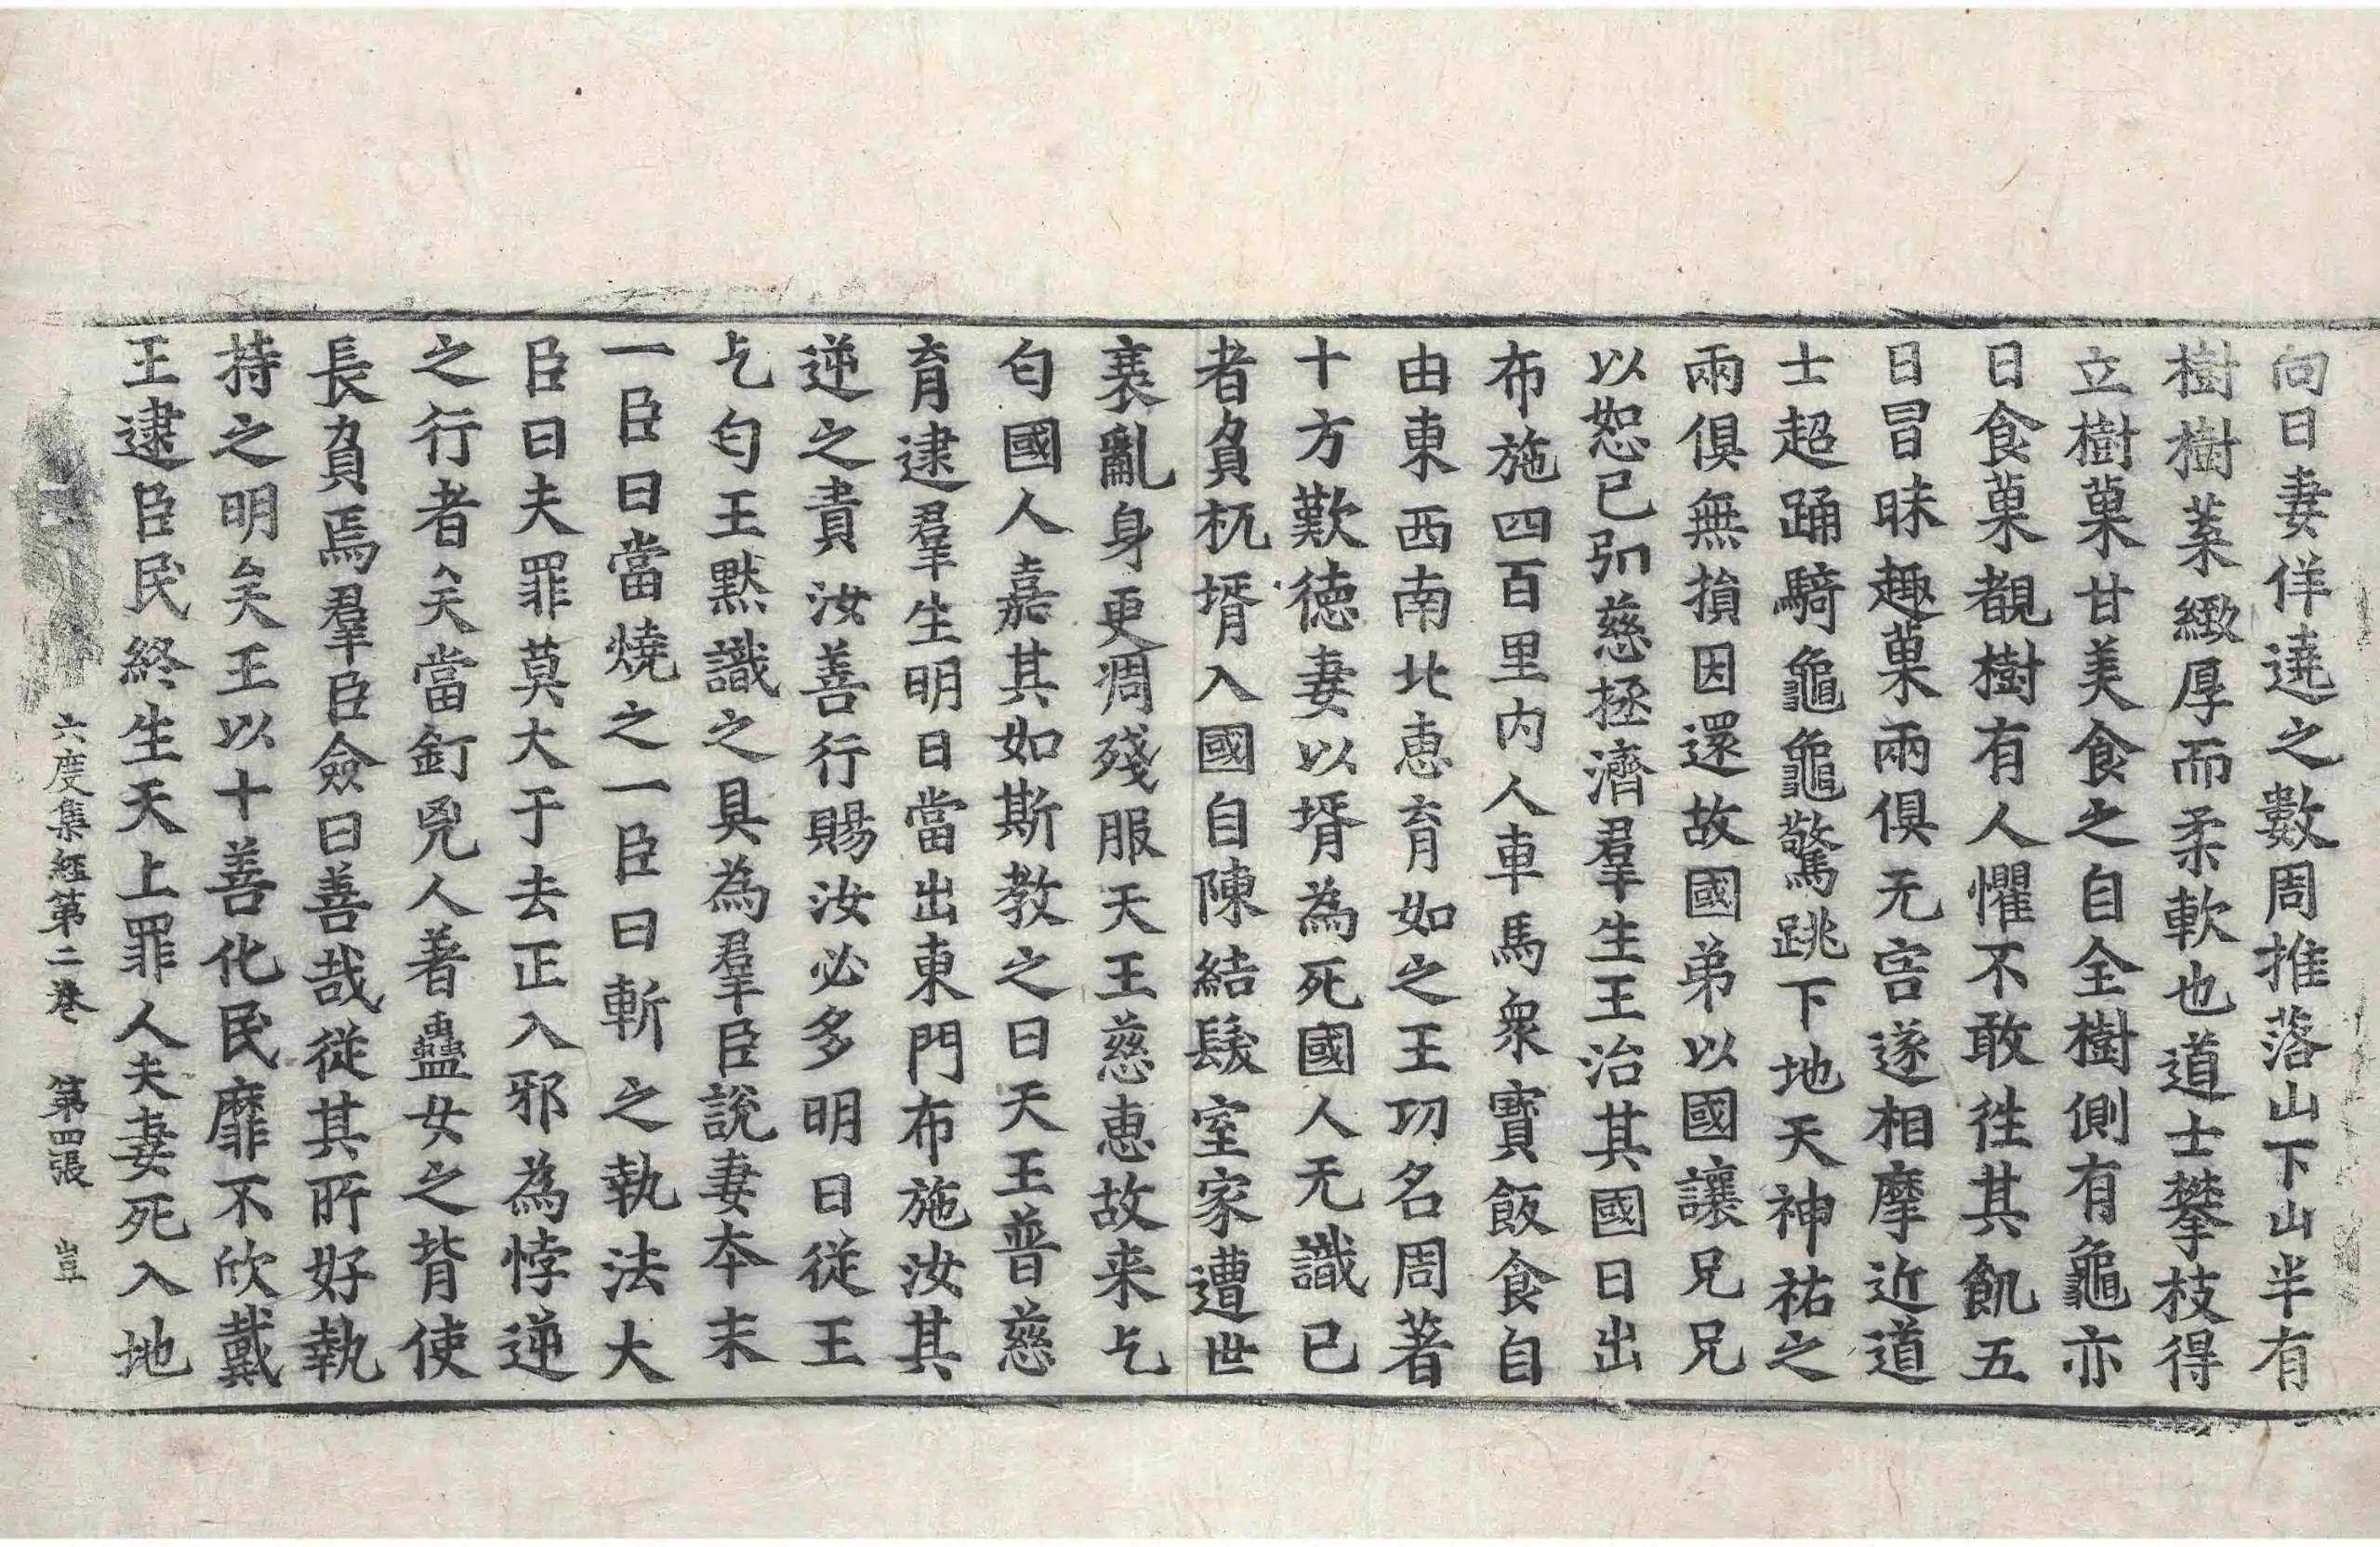 向日妻佯遶之數周推落山下山半有
樹樹葉緻厚而柔軟也道士攀枝得
立樹菓甘美食之自全樹側有龜亦
日食菓覩樹有人懼不敢徃其飢五
日冒昧趣菓兩俱无害遂相摩近道
士超踊騎龜龜驚跳下地天神祐之
兩俱無損因還故國弟以國讓兄兄
以恕已弘慈拯濟羣生王治其國日出
布施四百里内人車馬衆寳飯食自
由東西南北惠育如之王功名周著
十方歎德妻以壻為死國人无識已
者負杌壻入國自陳結髮室家遭世
衰亂身更凋殘服天王慈惠故来乞
匄國人嘉其如斯教之曰天王普慈
育逮羣生明日當出東門布施汝其
逆之貴汝善行賜汝必多明日從王
乞匄王默識之具為羣臣說妻本末
一臣曰當燒之一臣曰斬之執法大
臣曰夫罪莫大于去正入邪為悖逆
之行者矣當釘兇人著蠱女之背使
長負焉羣臣僉曰善哉從其所好執
持之明矣王以十善化民靡不欣戴
王逮臣民終生天上罪人夫妻死入地
六度集経第二卷 第四張 豈